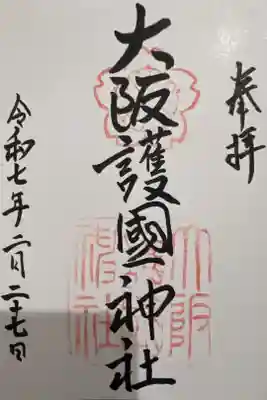 奉拝
大阪護國神社
令和七年二月二十七日